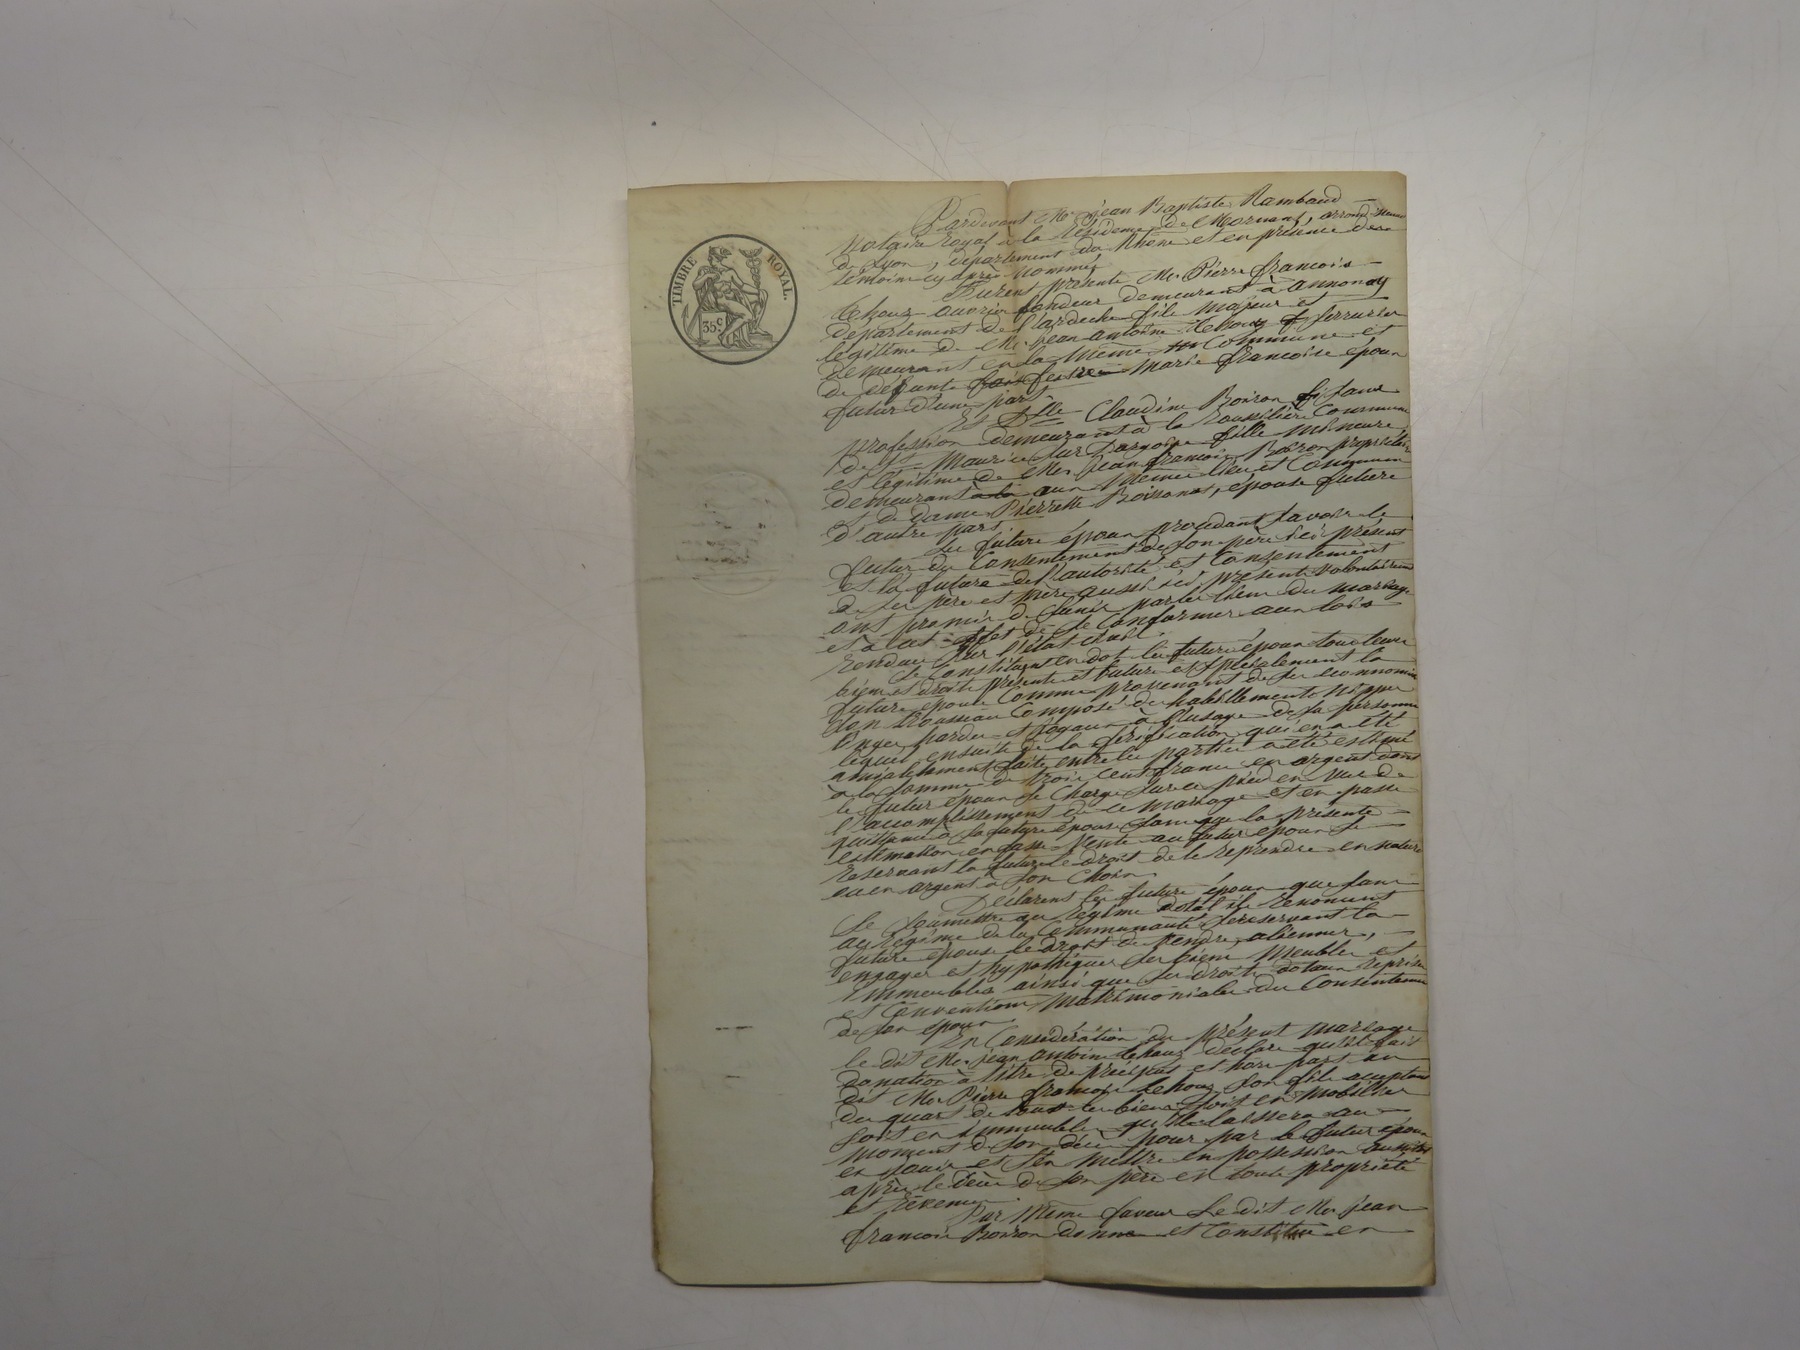 TIMBRE ROYAL.
35c
Pardevant Me jean Baptiste Rambaud
Notaire royal à la Résidence de Mornant, arrondissement
de Lyon, département du Rhône et en présence des
témoins cy après nommés
Furent présents Mr Pierre françois
ouvrier fondeur demeurant à Annonay
département de l'ardeche fils majeur et
légitime de Mr jean antoine serrurier
demeurant en la Même Commune et
de défunte Marie françoise époux
futur d'une part
Et Dlle Claudine Boiron sans
profession demeurant à la Rousslière Commune
de St Maurice sur Dargoire fille mineure
et légitime de Mr jean françois Boiron propriétaire
demeurant aux Même lieu et Commune
et de dame Pierrette Boissonat, épouse future
d'autre part
Les futurs époux procédant savoir le
futur du Consentement de son père ici présent
et la future de l'autorité et Consentement
de ses père et mère aussi ici présents volontairement
ont promis de s'unir par les liens du mariage
et à cet effet de se Conformer aux lois
rendues sur l'état civil
Se Constituent en dot les futurs époux tous leurs
biens et droits présents et futurs et spécialement la
future épouse Comme provenant de ses économies
son trousseau Composé de habillements nippes
linges hardes et joyaux à l'usage de sa personne
lequel ensuite de la vérification qui en a été
amiablement faite entre les parties a été estimé
à la somme de trois cents francs en argent dont
le futur époux se Charge sur ce pied en vue de
l'accomplissement de ce mariage et en passe
quittance à la future épouse sans que la présente
estimation en fasse Vente au futur époux se
réservant la future le droit de le reprendre en nature
ou en argent à son Choix
Déclarent les futurs époux que sans
se soumettre au régime dotal ils renoncent
au régime de la Communauté se réservant la
future épouse le droit de Vendre, aliéner,
engager et hypothéquer ses biens Meubles et
immeubles ainsi que ses droits dotaux reprises
et Conventions Matrimoniales du Consentement
de son époux
En Considération du présent mariage
le dit Mr jean antoine déclare qu'il fait
donation à titre de préciput et hors part au
dit Mr Pierre françois son fils acceptant
du quart de tous les biens soit en mobilier
soit en immeubles qu'il laissera au
moment de son décès pour par le futur époux
en jouir et s'en mettre en possession aussitôt
après le décès de son père en toute propriété
et revenus.
Par Même faveur le dit Mr jean
françois Boiron donne et Constitue en